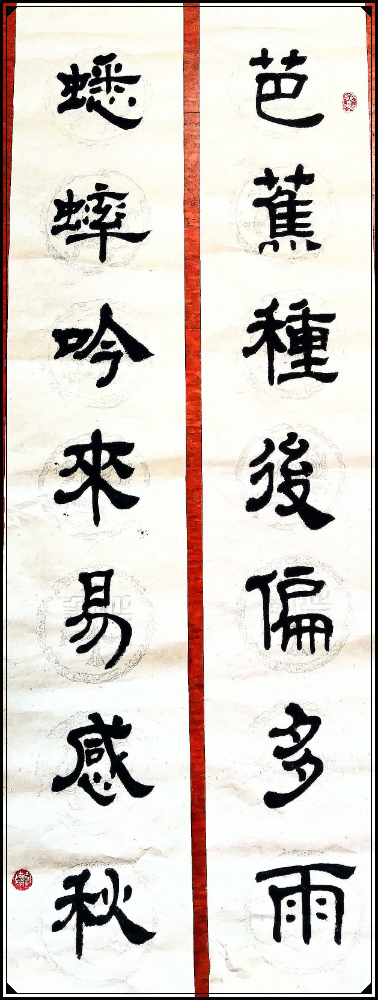 芭蕉種後偏多雨
蟋蟀吟來易感秋